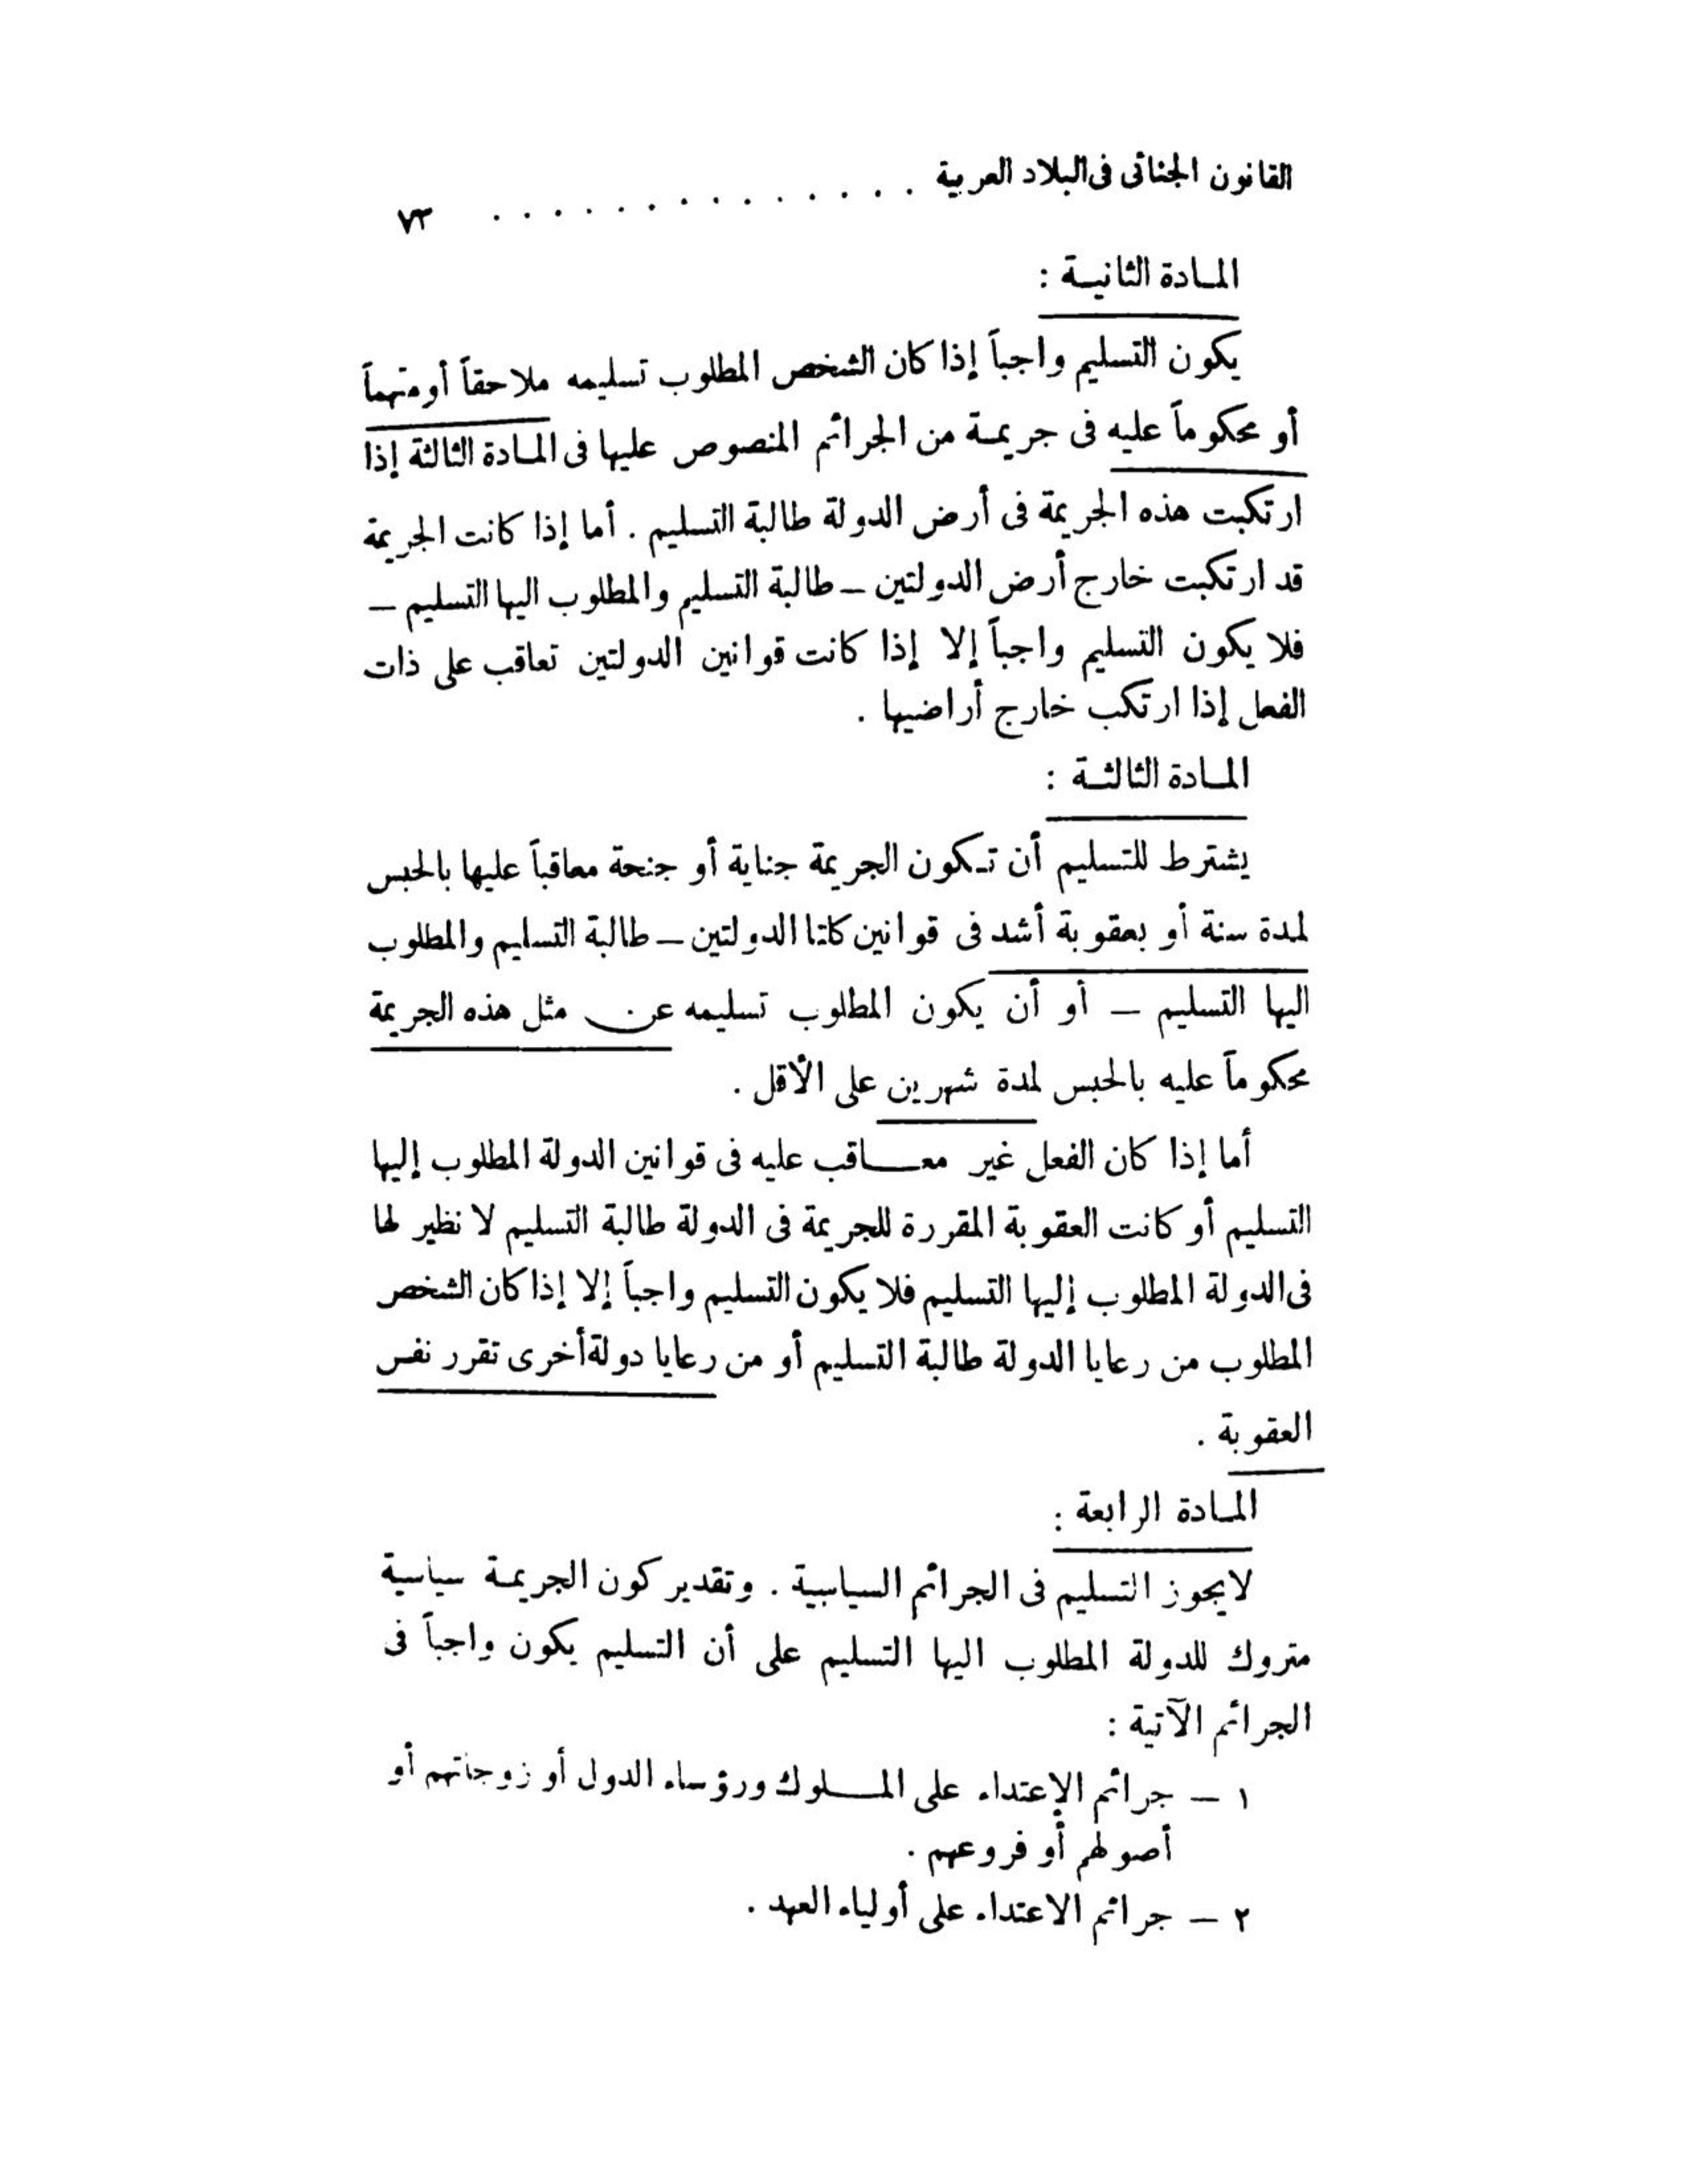 القانون الجنائى فى البلاد العربية . . . . . . . . . . . . . . ٧٣
المادة الثانية :
يكون التسليم واجباً إذا كان الشخص المطلوب تسليمه ملاحقاً أو متهماً
أو محكوماً عليه فى جريمة من الجرائم المنصوص عليها فى المادة الثالثة إذا
ارتكبت هذه الجريمة فى أرض الدولة طالبة التسليم . أما إذا كانت الجريمة
قد ارتكبت خارج أرض الدولتين – طالبة التسليم والمطلوب اليها التسليم –
فلا يكون التسليم واجباً إلا إذا كانت قوانين الدولتين تعاقب على ذات
الفعل إذا ارتكب خارج أراضيها .
المادة الثالثة :
يشترط للتسليم أن تكون الجريمة جناية أو جنحة معاقباً عليها بالحبس
لمدة سنة أو بعقوبة أشد فى قوانين كلتا الدولتين – طالبة التسليم والمطلوب
اليها التسليم – أو أن يكون المطلوب تسليمه عن مثل هذه الجريمة
محكوماً عليه بالحبس لمدة شهرين على الأقل .
أما إذا كان الفعل غير معاقب عليه فى قوانين الدولة المطلوب إليها
التسليم أو كانت العقوبة المقررة للجريمة فى الدولة طالبة التسليم لا نظير لها
فى الدولة المطلوب إليها التسليم فلا يكون التسليم واجباً إلا إذا كان الشخص
المطلوب من رعايا الدولة طالبة التسليم أو من رعايا دولة أخرى تقرر نفس
العقوبة .
المادة الرابعة :
لا يجوز التسليم فى الجرائم السياسية . وتقدير كون الجريمة سياسية
متروك للدولة المطلوب اليها التسليم على أن التسليم يكون واجباً فى
الجرائم الآتية :
١ – جرائم الإعتداء على الملوك ورؤساء الدول أو زوجاتهم أو
أصولهم أو فروعهم .
٢ – جرائم الاعتداء على أولياء العهد .